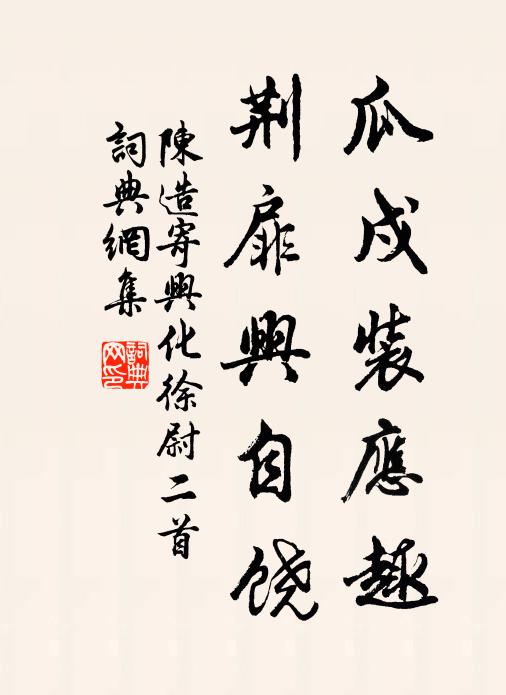 瓜戍裝應趣
荆扉興自饶
陳造寄興化徐尉二首
詞典網集
詞典网印